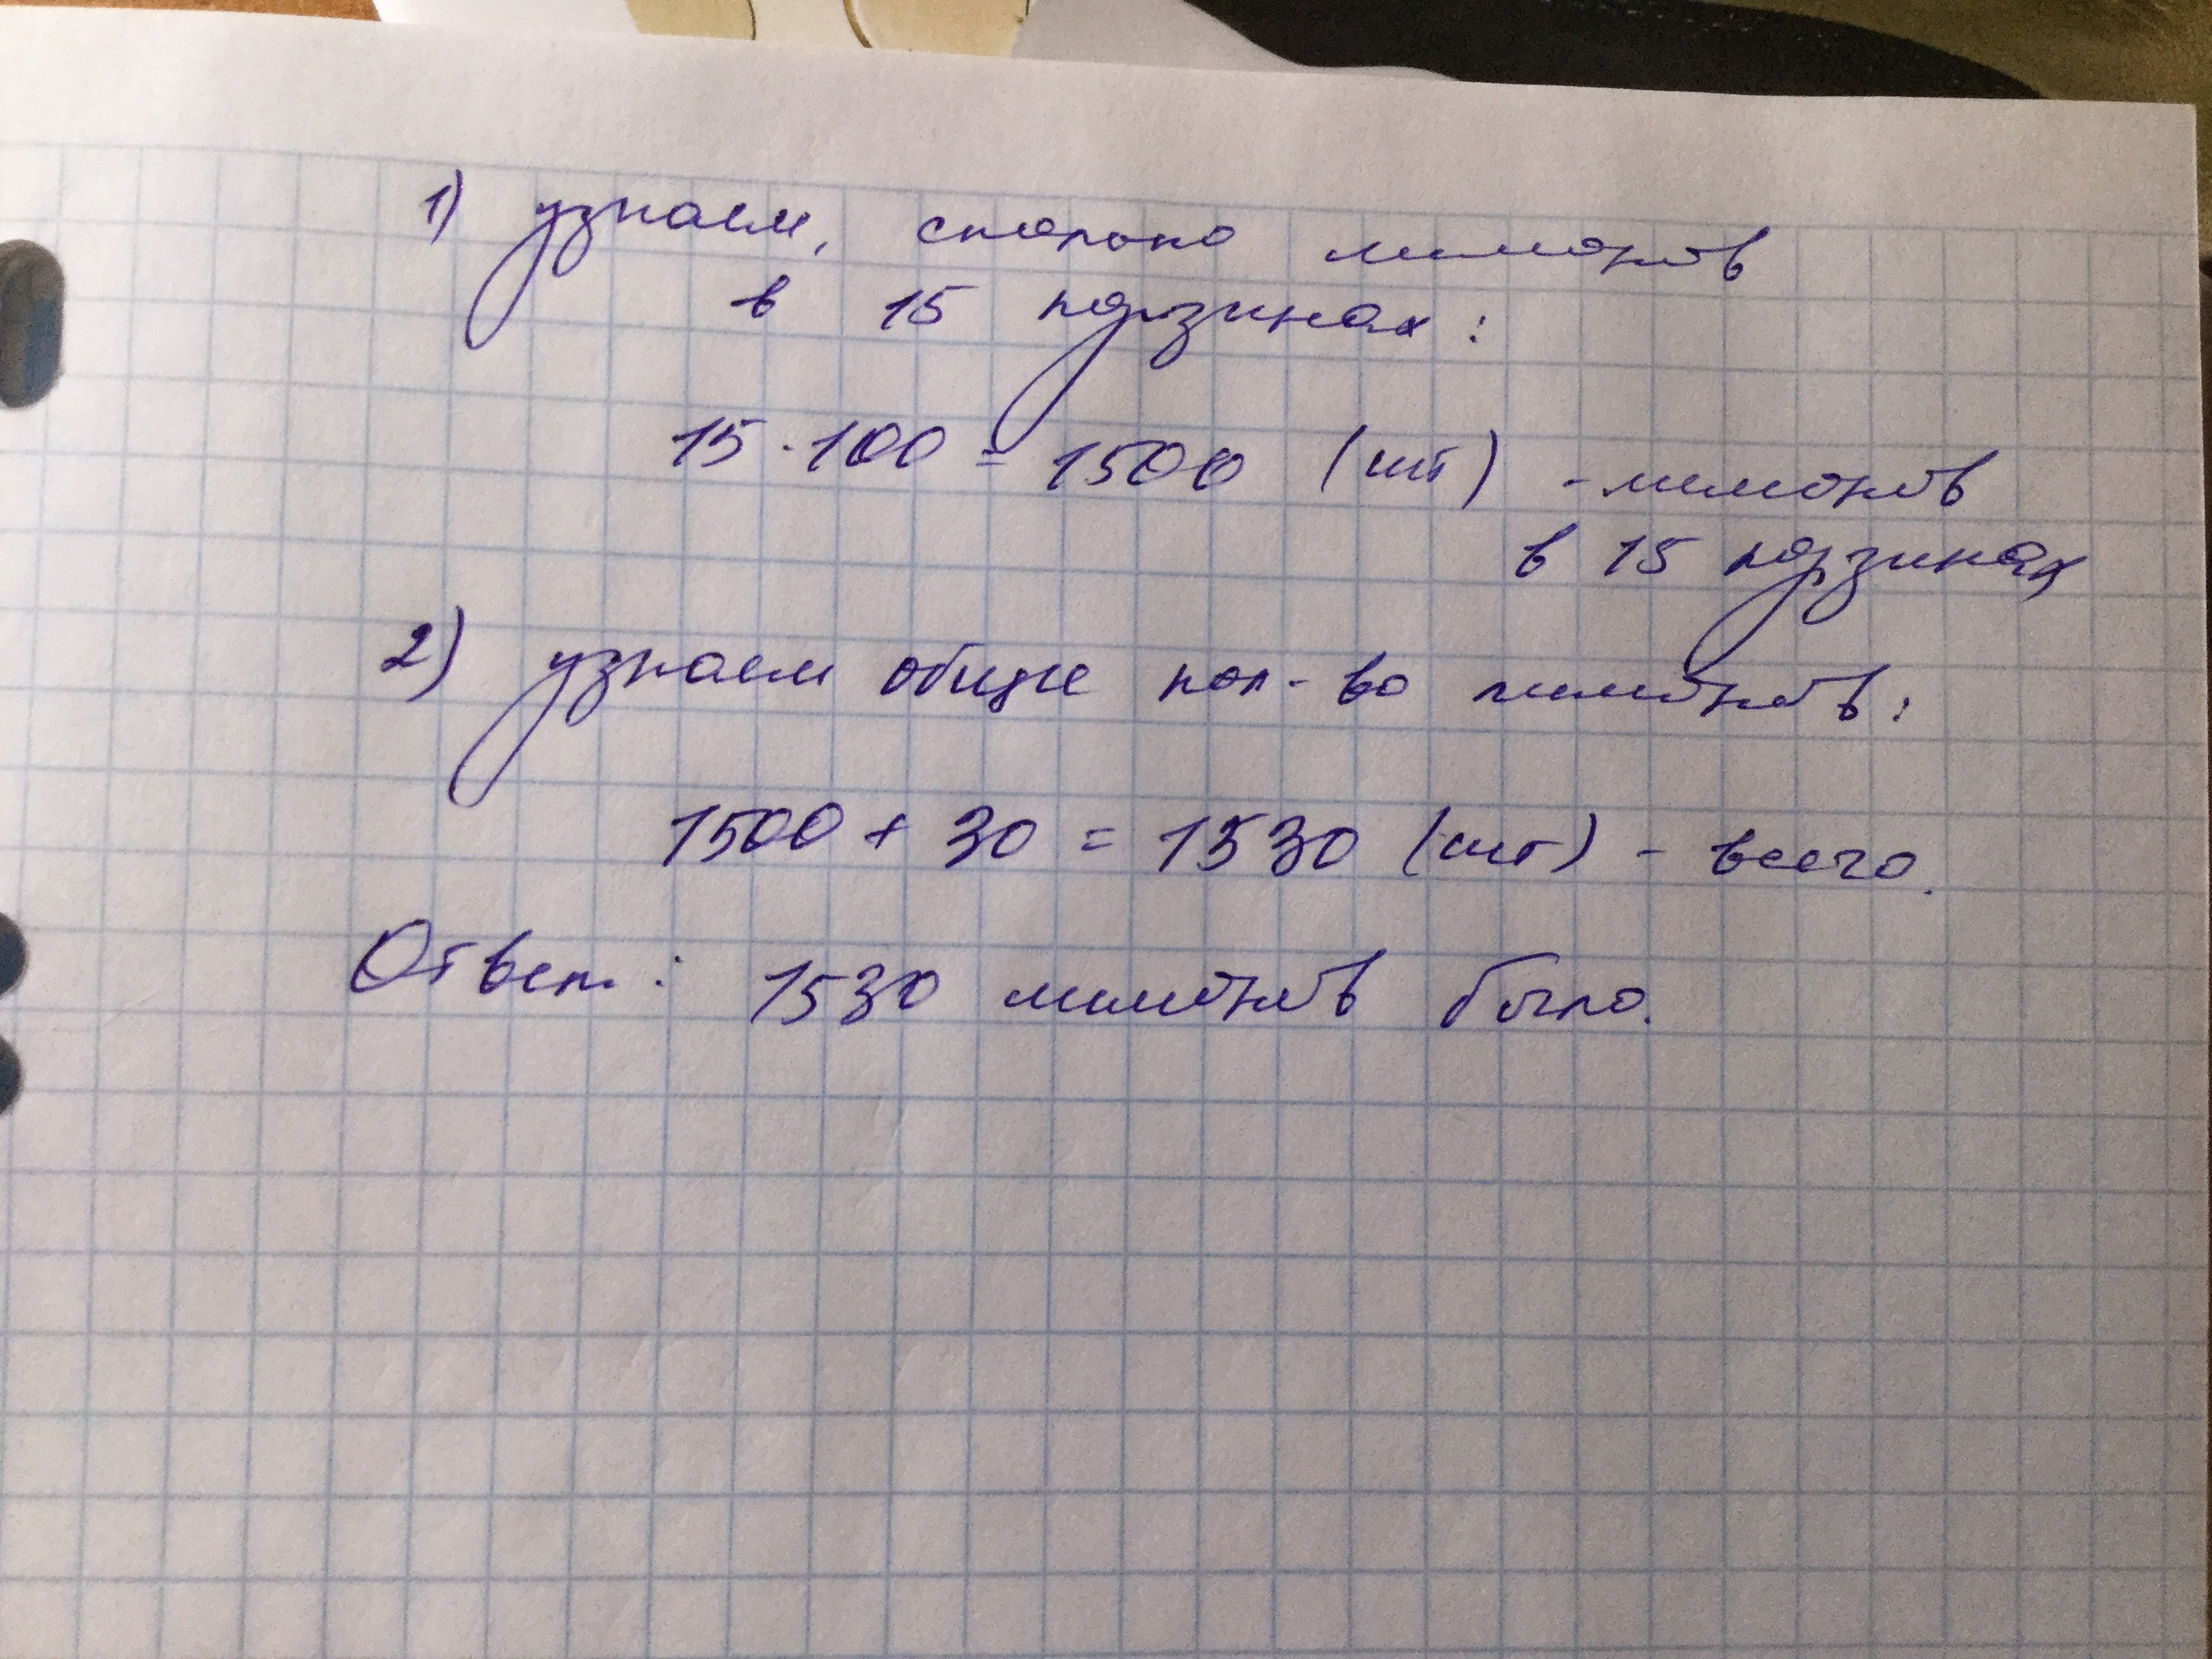 1) узнаем, сколько лимонов
в 15 корзинах:
15 · 100 = 1500 (шт) - лимонов
в 15 корзинах
2) узнаем общее кол-во лимонов:
1500 + 30 = 1530 (шт) - всего.
Ответ: 1530 лимонов было.